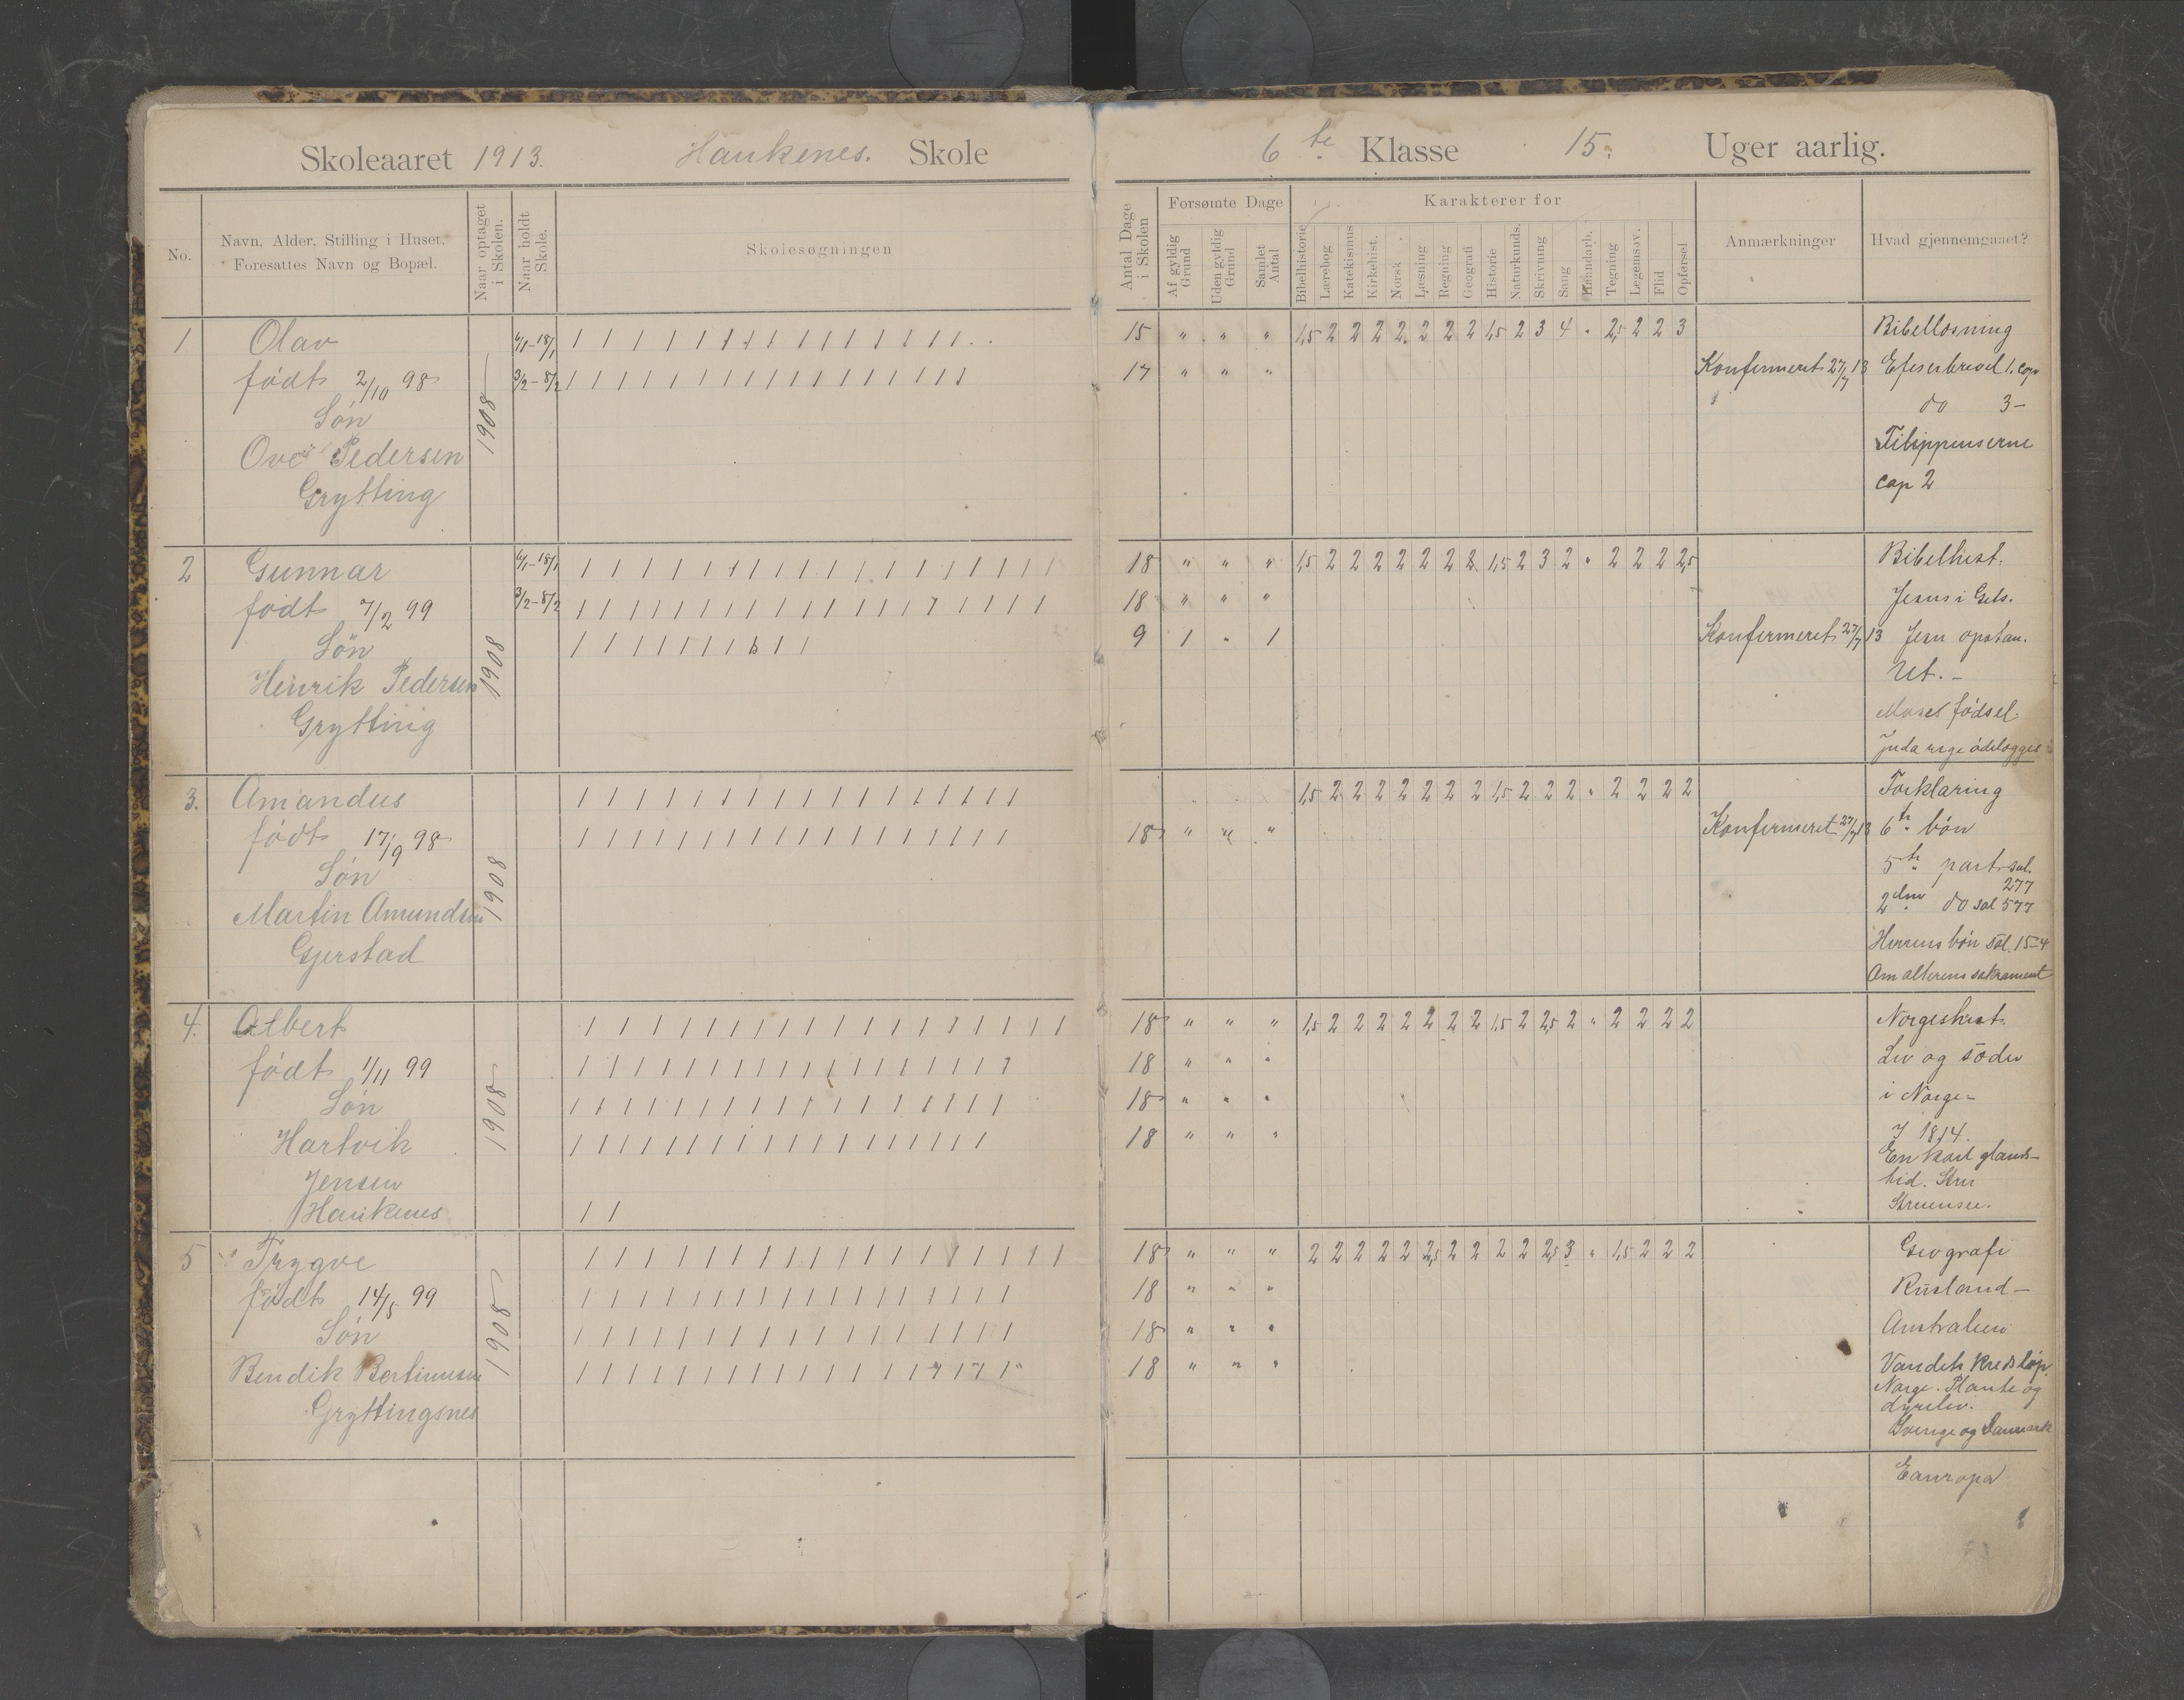 Skoleaaret 1913. Haukenes. Skole
6te Klasse 15. Uger aarlig.
No.
Navn, Alder, Stilling i Huset,
Foresattes Navn og Bopæl.
Naar optaget
i Skolen.
Naar holdt
Skole.
Skolesøgningen
Antal Dage
i Skolen
Forsømte Dage
Af gyldig
Grund
Uden gyldig
Grund
Samlet
Antal
Karakterer for
Bibelhistorie
Lærebog
Katekismus
Kirkehist.
Norsk
Læsning
Regning
Geografi
Historie
Naturkunds.
Skrivning
Sang
Haandarb.
Tegning
Legemsøv.
Flid
Opførsel
Anmærkninger
Hvad gjennemgaaet?
1 Olav
født 2/10 98
Søn
Ove Pedersen
Grytting
1908
6/1-18/1
3/2-8/2
15 " " " 1,5 2 2 2 2 2 2 2 1,5 2 3 4 " 2,5 2 2 3
17 " " "
Konfirmeret 27/7 13
Bibellæsning
Efeserbrevet 1. cap
do 3-
Filippenserne
cap 2
2 Gunnar
født 7/2 99
Søn
Henrik Pedersen
Grytting
1908
6/1-18/1
3/2-8/2
18 " " " 1,5 2 2 2 2 2 2 2 1,5 2 3 2 " 2 2 2 2,5
18 " " "
9 1 " 1
Konfirmeret 27/7 13
Bibelhist.
Jesus i Gets.
Jesu opstan.
Moses fødsel.
Juda rige ødelægges
3. Amandus
født 17/9 98
Søn
Martin Amundsen
Gjerstad
1908
1,5 2 2 2 2 2 2 2 1,5 2 2 2 " 2 2 2 2
18 " " "
Konfirmeret 27/7 13
Forklaring
6te bøn
5te part sal.
277
2den do sal 577
Herrens bøn sal. 15-4
Om alterens sakrament
4. Albert
født 1/11 99
Søn
Hartvik
Jensen
Haukenes
1908
18 " " " 1,5 2 2 2 2 2 2 2 1,5 2 2,5 2 " 2 2 2 2
18 " " "
18 " " "
18 " " "
Norgeshist.
Liv og sæder
i Norge-
I 1814.
Struensee.
5 Trygve
født 14/5 99
Søn
Bendik Bertinusen
Gryttingsnes
1908
18 " " " 2 2 2 2 2 2,5 2 2 2 2 2,5 3 " 1,5 2 2 2
18 " " "
18 " " "
18 " " "
Geografi
Rusland-
Australien
Vandets kredsløp.
Norge. Plante og
dyreliv.
Sverige og Danmark
Eauropa